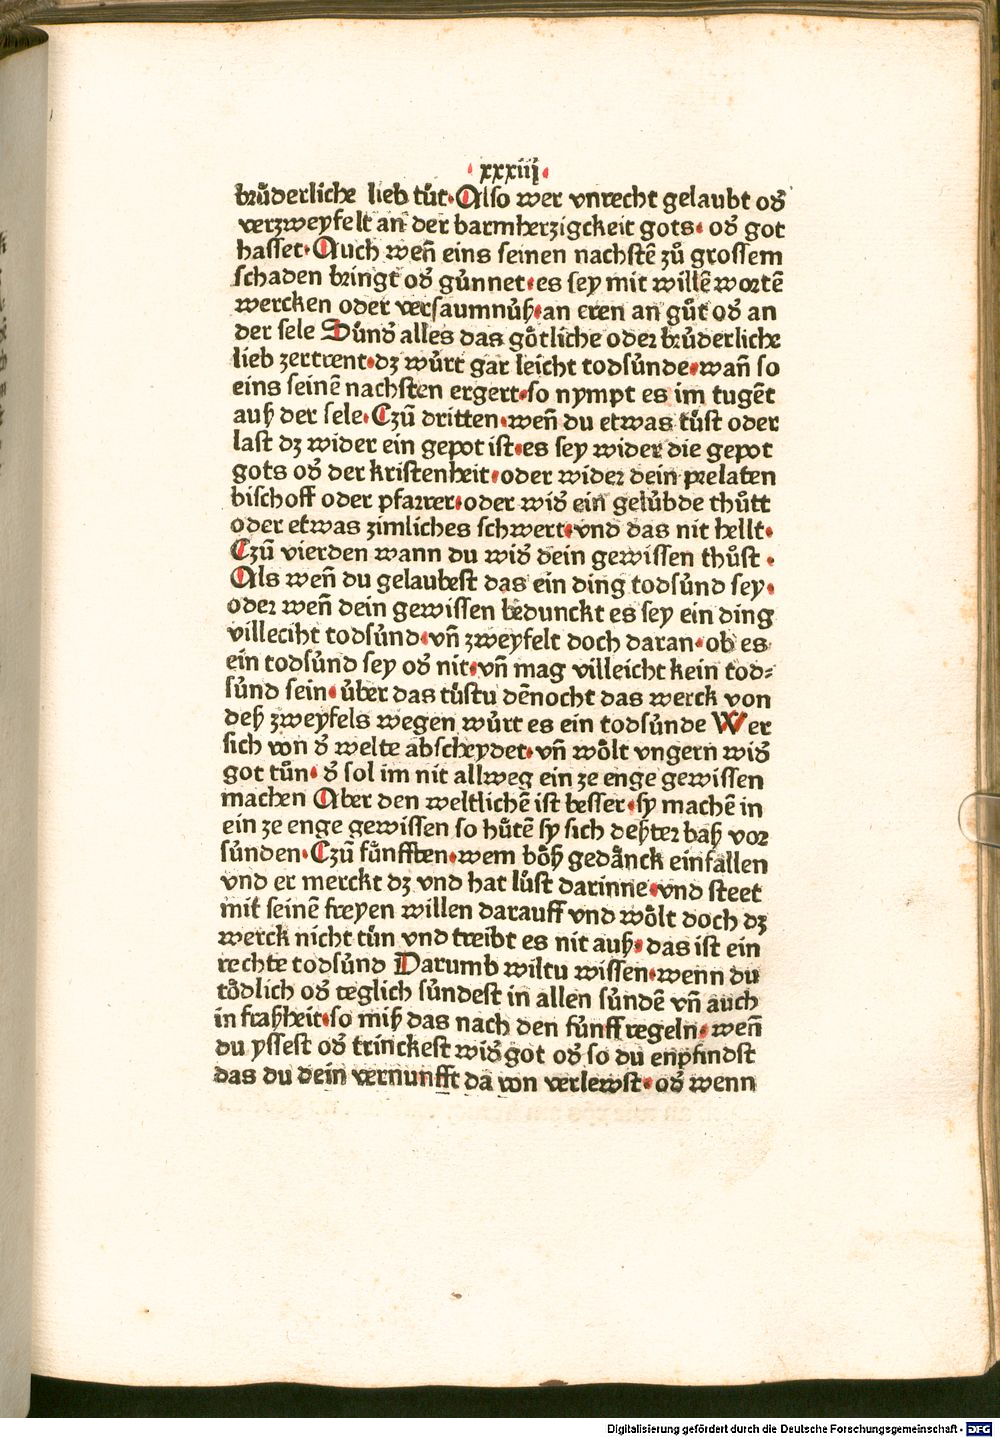 ·xxxiij·
bruͤderliche lieb tuͤt·Also wer vnrecht gelaubt oð
verzweyfelt an der barmherzigckeit gots· oð got
hasset·Auch weñ eins seinen nachstē zuͦ grossem
schaden bringt oð guͤnnet·es sey mit willē wortē
wercken oder versaumnuͤß·an eren an guͦt oð an
der sele Suͤnð alles das goͤtliche oder bruͤderliche
lieb zertrent·dz wuͤrt gar leicht todsuͤnde·wañ so
eins seinē nachsten ergert·so nympt es im tugēt
auß der sele·Czuͦ dritten·weñ du etwas tuͦst oder
last dz wider ein gepot ist·es sey wider die gepot
gots oð der kristenheit·oder wider dein prelaten
bischoff oder pfarrer·oder wið ein geluͤbde thuͤtt
oder etwas zimliches schwert·vnd das nit hellt·
Czuͦ vierden wann du wið dein gewissen thuͦst·
Als weñ du gelaubest das ein ding todsuͤnd sey·
oder weñ dein gewissen bedunckt es sey ein ding
villeciht todsuͤnd·vñ zweyfelt doch daran·ob es
ein todsuͤnd sey oð nit·vñ mag villeicht kein tod⸗
suͤnd sein·uͤber das tuͦstu dēnocht das werck von
deß zweyfels wegen wuͤrt es ein todsuͤnde Wer
sich von ð welte abscheydet·vñ woͤlt vngern wið
got tuͦn·ð sol im nit allweg ein ze enge gewissen
machen Aber den weltlichē ist besser·sy machē in
ein ze enge gewissen so huͤtē sy sich deßter baß vor
suͤnden·Czuͦ fuͤnfften·wem boͤß gedaͤnck einfallen
vnd er merckt dz vnd hat luͤst darinne·vnd steet
mit seinē freyen willen darauff vnd woͤlt doch dz
werck nicht tuͦn vnd treibt es nit auß·das ist ein
rechte todsuͤnd Darumb wiltu wissen·wenn du
toͤdlich oð teglich suͤndest in allen suͤndē vñ auch
in fraßheit·so miß das nach den fuͤnff regeln·weñ
du yssest oð trinckest wið got oð so du enpfindst
das du dein vernunfft da von verlewst·oð wenn
Digitalisierung gefördert durch die Deutsche Forschungsgemeinschaft - DFG